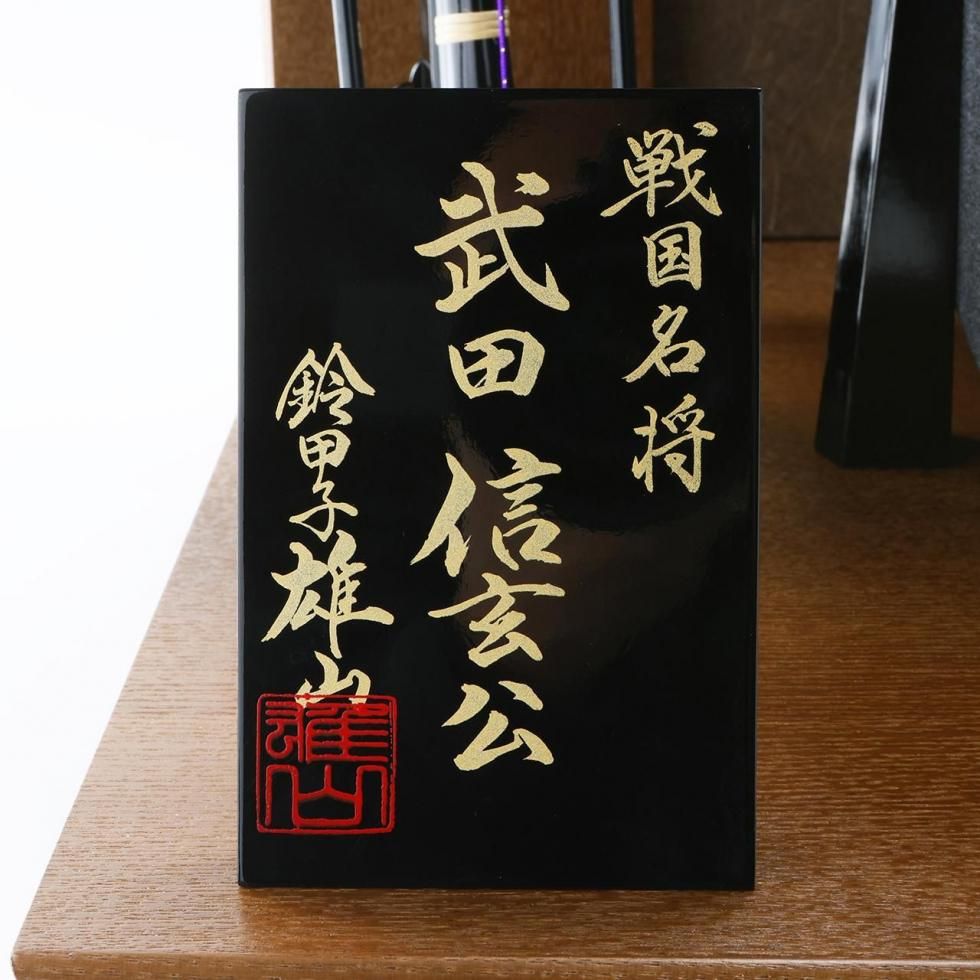 戦国名将
武田信玄公
鈴甲子雄山
雄山